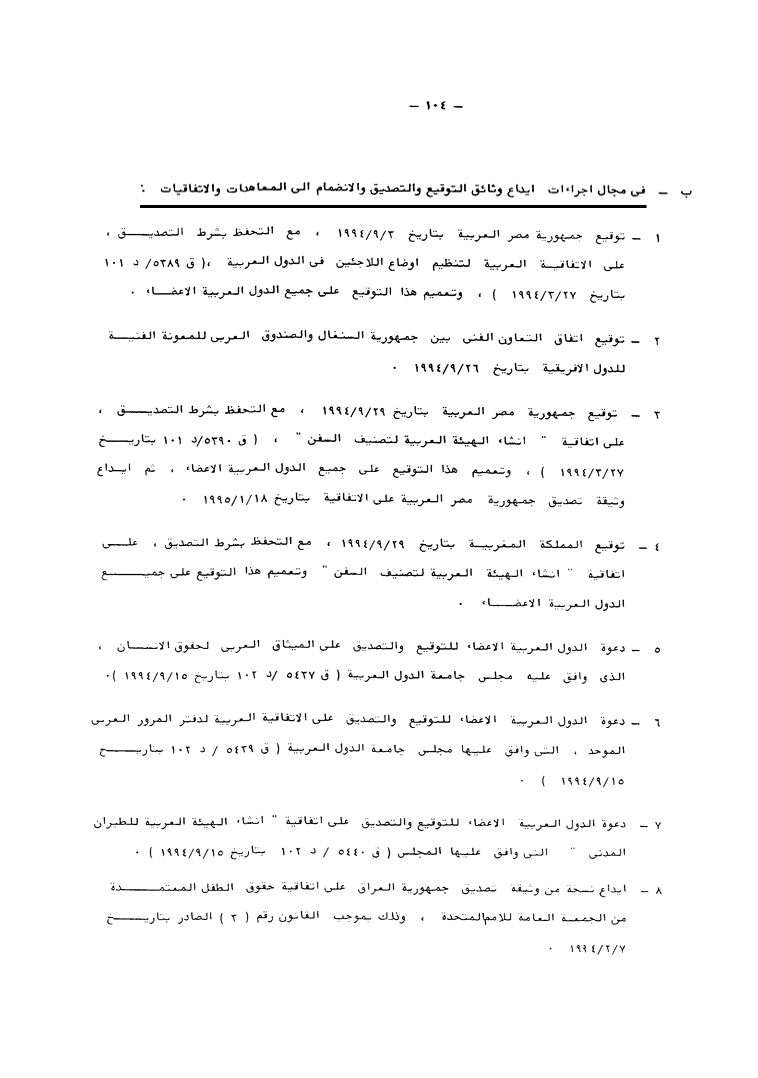 — ١٠٤ —
ب — فى مجال اجراءات ايداع وثائق التوقيع والتصديق والانضمام الى المعاهدات والاتفاقيات :
١ — توقيع جمهورية مصر العربية بتاريخ ١٩٩٤/٩/٢ ، مع التحفظ بشرط التصديـــق ،
على الاتفاقيـة العربية لتنظيم اوضاع اللاجئين فى الدول العربية ،( ق ٥٣٨٩/ د ١٠١
بتاريخ ١٩٩٤/٣/٢٧ ) ، وتعميم هذا التوقيع على جميع الدول العربية الاعضـاء .
٢ — توقيع اتفاق التعاون الفنى بين جمهورية السنغال والصندوق العربى للمعونة الفنيـة
للدول الافريقية بتاريخ ١٩٩٤/٩/٢٦ .
٣ — توقيع جمهورية مصر العربية بتاريخ ١٩٩٤/٩/٢٩ ، مع التحفظ بشرط التصديـــق ،
على اتفاقية " انشاء الهيئة العربية لتصنيف السفن " ، ( ق ٥٣٩٠/د ١٠١ بتاريـــخ
١٩٩٤/٣/٢٧ ) ، وتعميم هذا التوقيع على جميع الدول العربية الاعضاء ، ثم ايـداع
وثيقة تصديق جمهورية مصر العربية على الاتفاقية بتاريخ ١٩٩٥/١/١٨ .
٤ — توقيع المملكة المغربيـة بتاريخ ١٩٩٤/٩/٢٩ ، مع التحفظ بشرط التصديق ، علــى
اتفاقية " انشاء الهيئة العربية لتصنيف السفن " وتعميم هذا التوقيع على جميـــع
الدول العربية الاعضـــاء .
٥ — دعوة الدول العربية الاعضاء للتوقيع والتصديق على الميثاق العربى لحقوق الانسـان ،
الذى وافق عليه مجلس جامعة الدول العربية ( ق ٥٤٣٧ /د ١٠٢ بتاريخ ١٩٩٤/٩/١٥ ).
٦ — دعوة الدول العربية الاعضاء للتوقيع والتصديق على الاتفاقية العربية لدفتر المرور العربى
الموحد ، التى وافق عليها مجلس جامعة الدول العربية ( ق ٥٤٣٩ / د ١٠٢ بتاريـــخ
١٩٩٤/٩/١٥ ) .
٧ — دعوة الدول العربية الاعضاء للتوقيع والتصديق على اتفاقية " انشاء الهيئة العربية للطيران
المدنى " التى وافق عليها المجلس ( ق ٥٤٤٠ / د ١٠٢ بتاريخ ١٩٩٤/٩/١٥ ) .
٨ — ايداع نسخة من وثيقة تصديق جمهورية العراق على اتفاقية حقوق الطفل المعتمـــدة
من الجمعية العامة للامم المتحدة ، وذلك بموجب القانون رقم ( ٣ ) الصادر بتاريـــخ
١٩٩٤/٢/٧ .